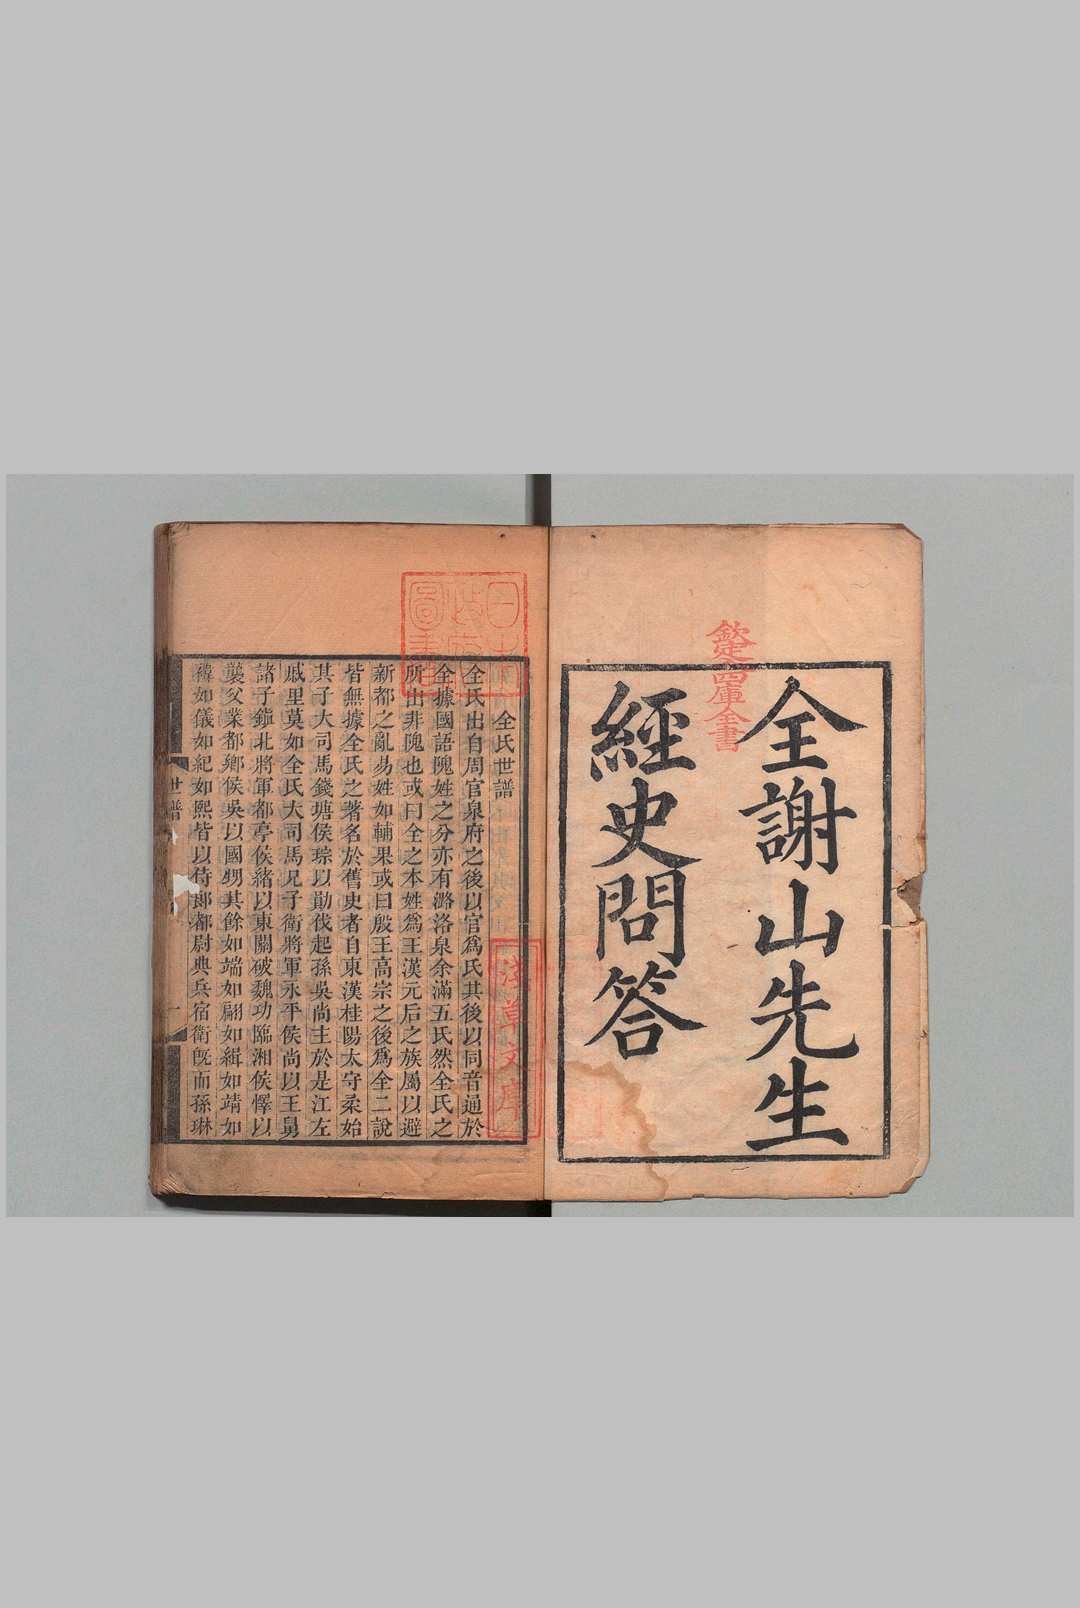 全謝山先生
經史問答
欽定四庫全書
日本
政府
圖書
淺草文庫
全氏世譜
全氏出自周官泉府之後以官爲氏其後以同音通於
全據國語隗姓之分亦有潞洛泉余滿五氏然全氏之
所出非隗也或曰全之本姓爲王漢元后之族屬以避
新都之亂易姓如輔果或曰殷王高宗之後爲全二說
皆無據全氏之著名於舊史者自東漢桂陽太守柔始
其子大司馬錢塘侯琮以勛伐起孫吳尚主於是江左
戚里莫如全氏大司馬兄子衛將軍永平侯尚以王舅
諸子鎮北將軍都亭侯緒以東關破魏功臨湘侯懌以
襲父業都鄉侯吳以國甥其餘如端如翩如緝如靖如
禕如儀如紀如熙皆以侍郎都尉典兵宿衛旣而孫琳
世譜
一